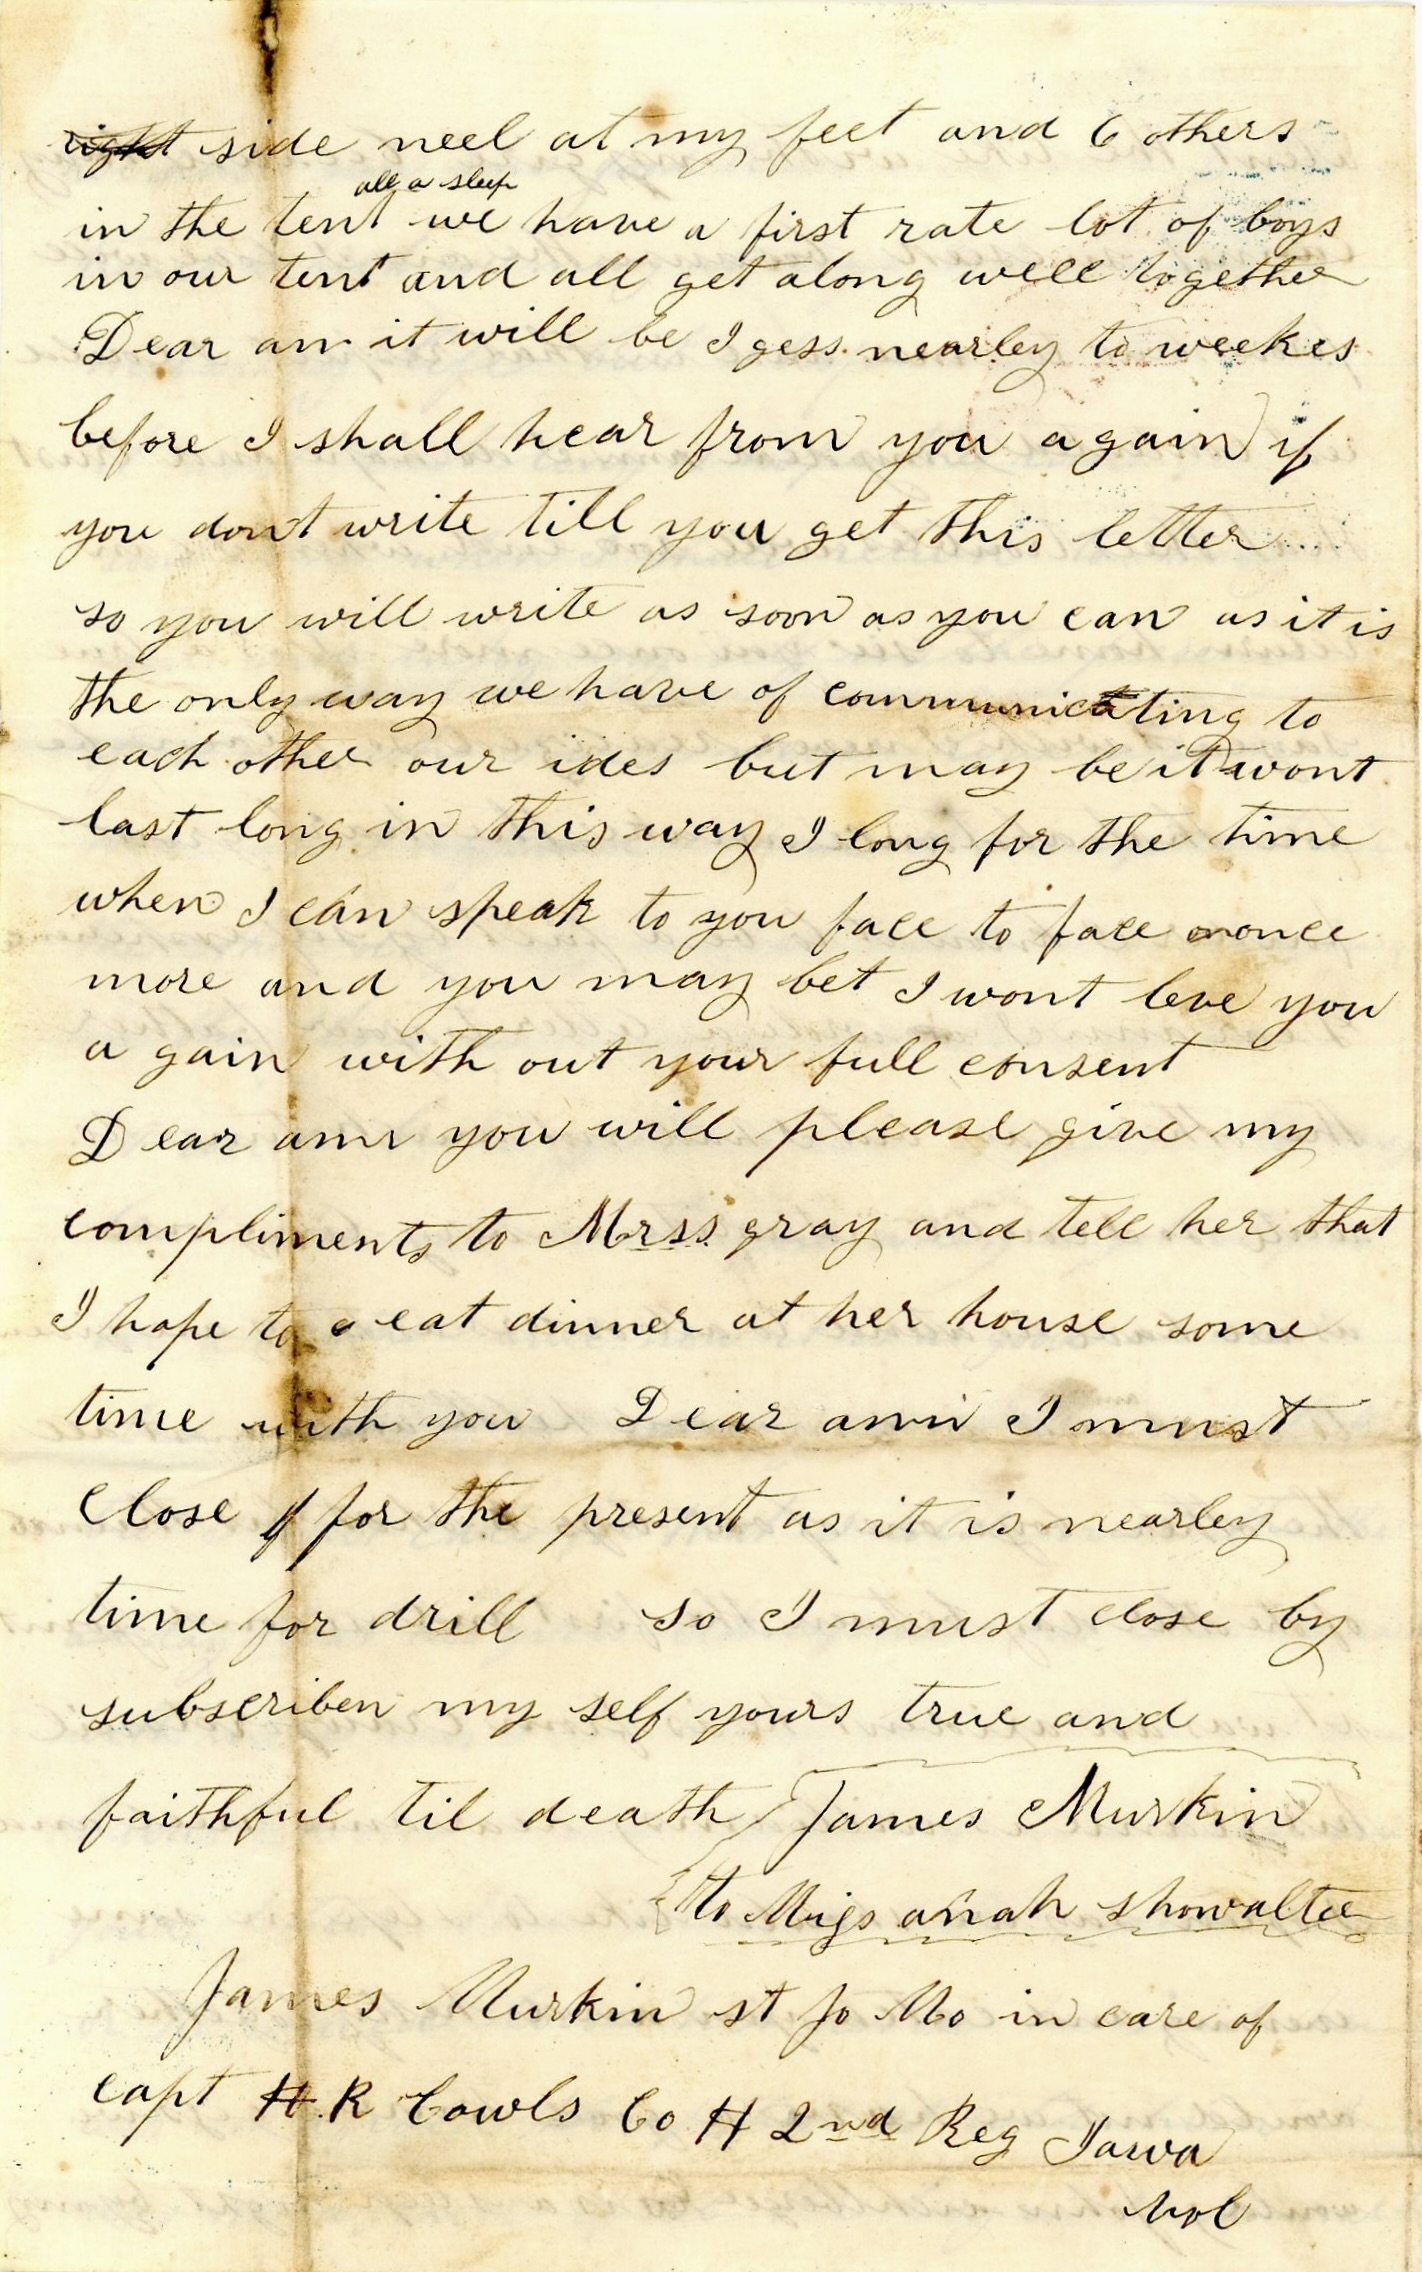 right side neel at my feet and 6 others
all a sleep
in the tent we have a first rate lot of boys
in our tent and all get along well together
Dear ann it will be I gess nearley to weekes
before I shall hear from you again if
you dont write till you get this letter
so you will write as soon as you can as it is
the only way we have of communicating to
each other our ides but may be it wont
last long in this way I long for the time
when I can speak to you face to face once
more and you may bet I wont leve you
a gain with out your full consent
Dear ann you will please give my
compliments to Mrss gray and tell her that
I hope to eat dinner at her house some
time with you Dear ann I must
Close for the present as it is nearley
time for drill so I must close by
subscriben my self yours true and
faithful til death James Murkin
to Migs anah showalter
James Murkin st Jo Mo in care of
capt H.R Cowls Co H 2nd Reg Iowa
Vol